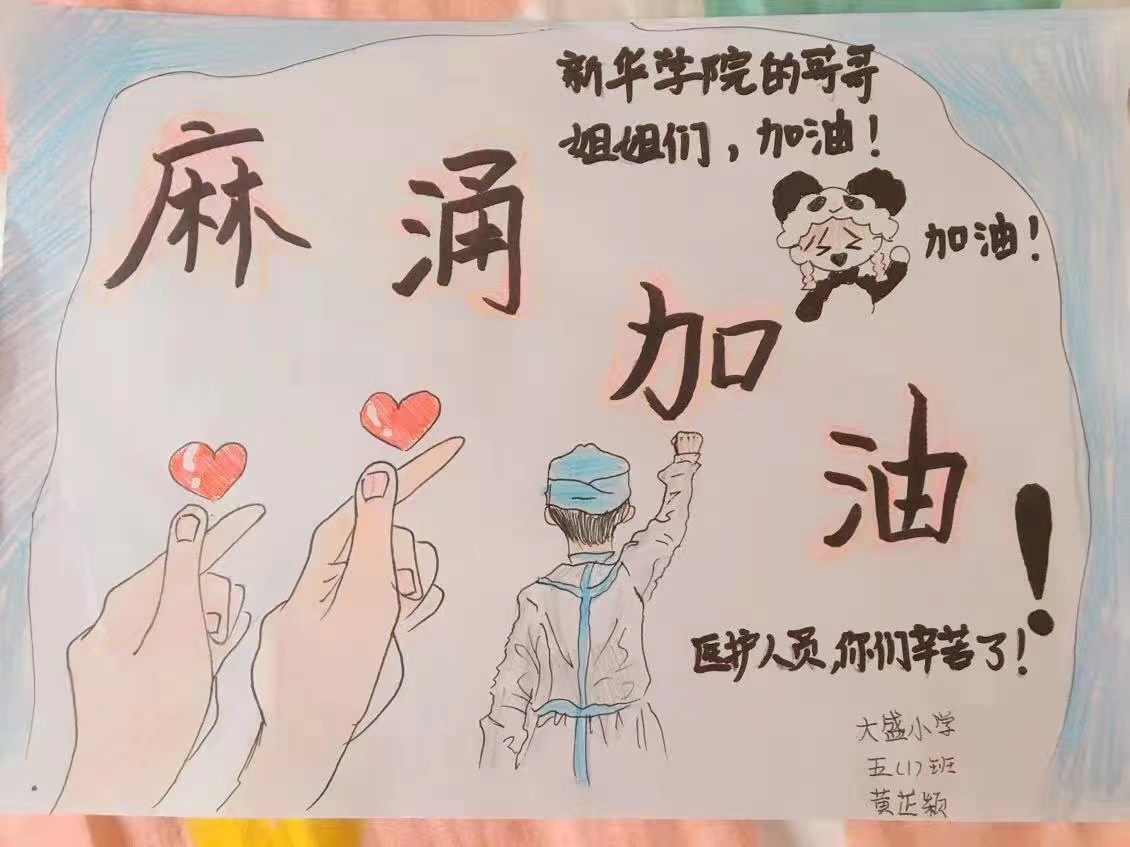 新华学院的哥哥
姐姐们，加油！
麻涌加油！
加油！
医护人员,你们辛苦了！
大盛小学
五(1)班
黄芷颖